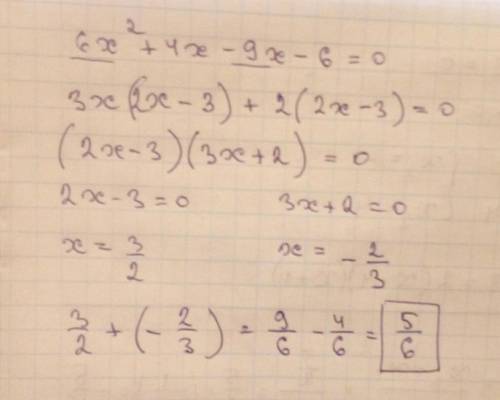 6x² + 4x - 9x - 6 = 0
3x(2x - 3) + 2(2x - 3) = 0
(2x - 3)(3x + 2) = 0
2x - 3 = 0 3x + 2 = 0
x = 3/2 x = - 2/3
3/2 + (- 2/3) = 9/6 - 4/6 = 5/6